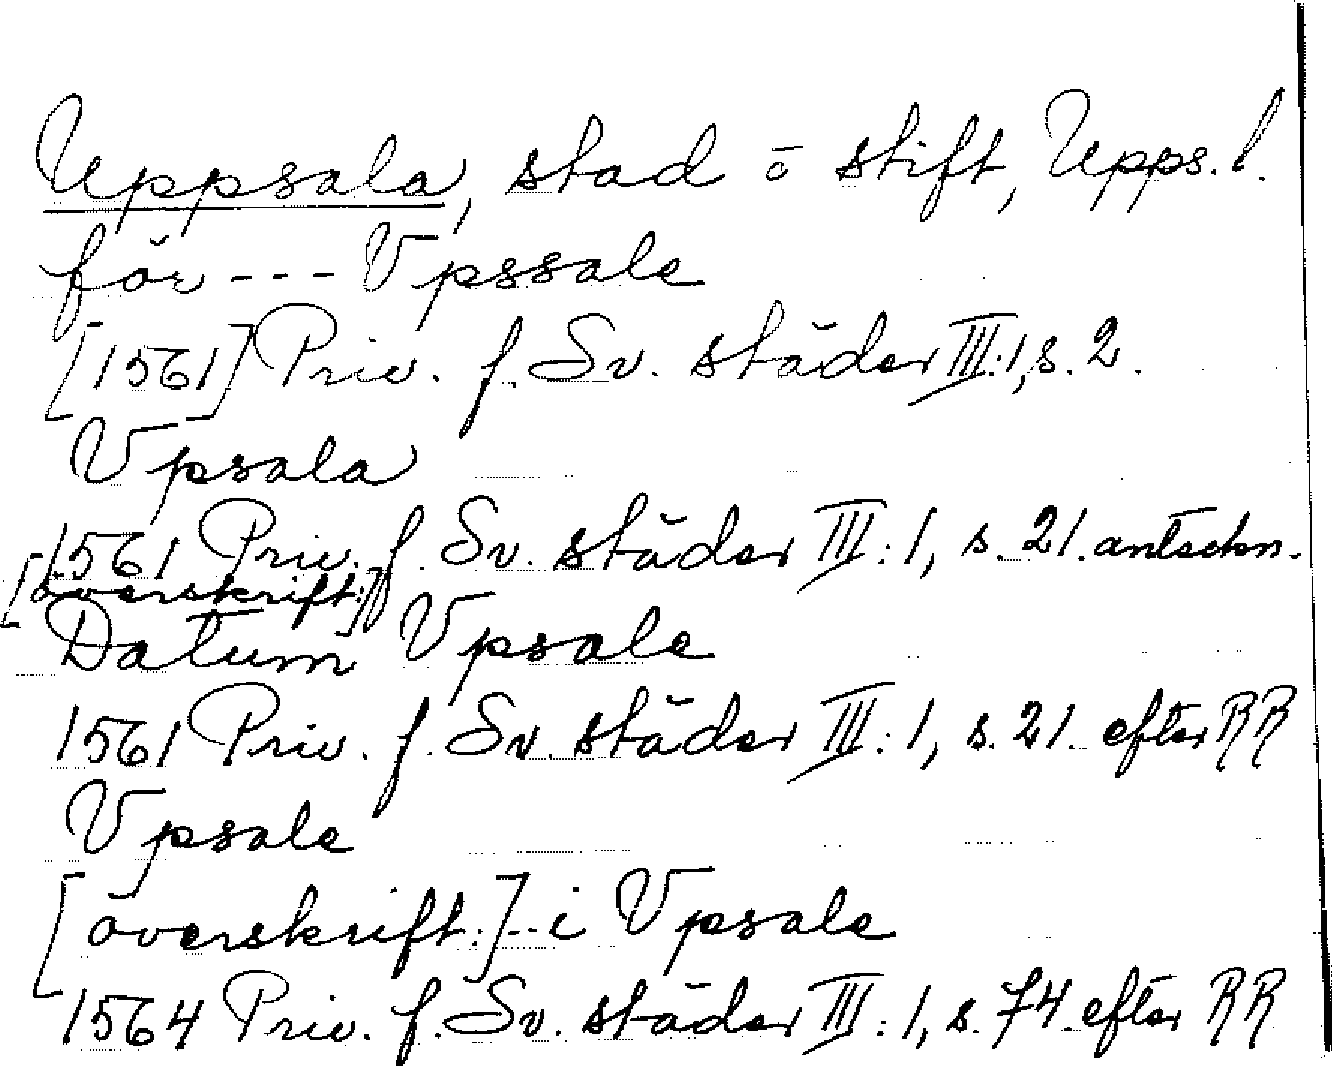 Uppsala, stad o stift, Upps. l.
för --- Vpssale
[1561] Priv. f. Sv. städer III:1, s. 2.
Vpsala
1561 Priv. f. Sv. städer III:1, s. 21. anteckn.
[överskrift:]
Datum Vpsale
1561 Priv. f. Sv. städer III:1, s. 21. efter RR
Vpsale
[överskrift:] -- i Vpsale
1564 Priv. f. Sv. städer III:1, s. 74 efter RR